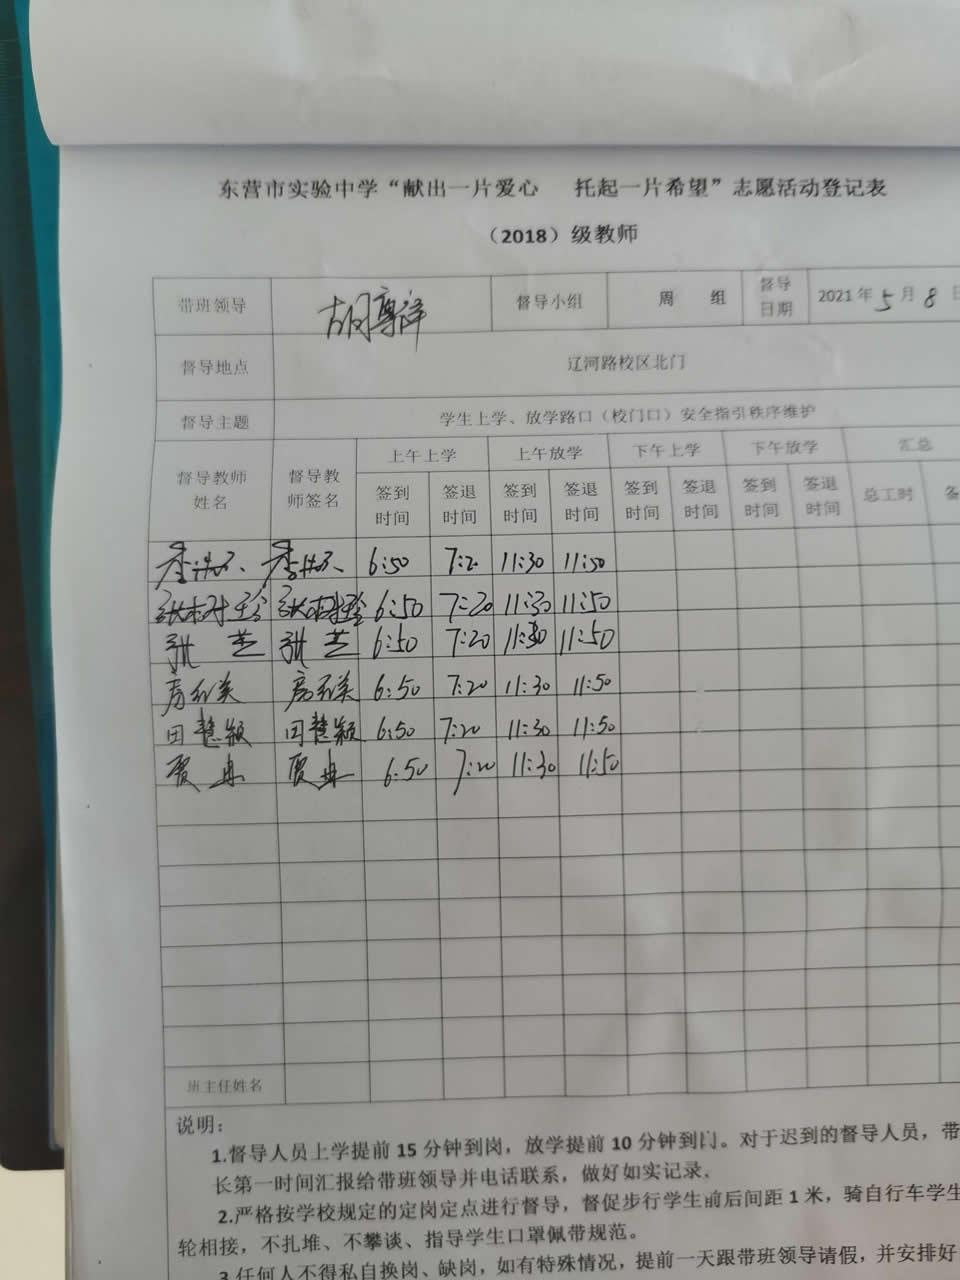 东营市实验中学“献出一片爱心 托起一片希望”志愿活动登记表
（2018）级教师
带班领导 胡尊洋 督导小组 周 组 督导日期 2021年5月8日
督导地点 辽河路校区北门
督导主题 学生上学、放学路口（校门口）安全指引秩序维护
督导教师姓名 督导教师签名 上午上学 上午放学 下午上学 下午放学 汇总
签到时间 签退时间 签到时间 签退时间 签到时间 签退时间 签到时间 签退时间 总工时 备
6:50 7:20 11:30 11:50
张树玲 张树玲 6:50 7:20 11:30 11:50
张芝 张芝 6:50 7:20 11:30 11:50
6:50 7:20 11:30 11:50
田慧颖 田慧颖 6:50 7:20 11:30 11:50
贾冉 贾冉 6:50 7:20 11:30 11:50
班主任姓名
说明：
1.督导人员上学提前15分钟到岗，放学提前10分钟到门。对于迟到的督导人员，带
长第一时间汇报给带班领导并电话联系，做好如实记录.
2.严格按学校规定的定岗定点进行督导，督促步行学生前后间距1米，骑自行车学生
轮相接，不扎堆、不攀谈、指导学生口罩佩带规范。
3.任何人不得私自换岗、缺岗，如有特殊情况，提前一天跟带班领导请假，并安排好